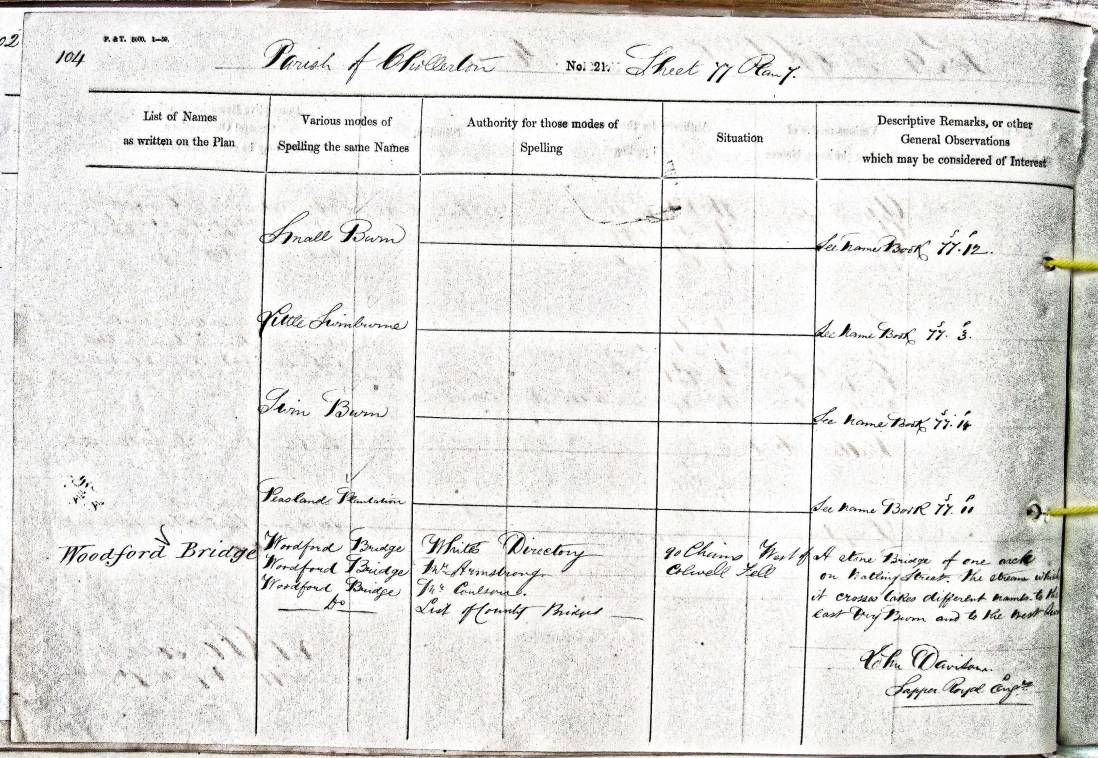 02
104
P. & T. 5000. 2—59.
Parish of Chollerton No. 21. Sheet 77 Plan 7.
List of Names
as written on the Plan
Various modes of
Spelling the same Names
Authority for those modes of
Spelling
Situation
Descriptive Remarks, or other
General Observations
which may be considered of Interest
Small Burn See Name Book S 77. P 12.
Little Swinburne See Name Book S 77. P 3.
Swin Burn See Name Book S 77. P 14
Peaslands Plantation See Name Book S 77 P 11
Woodford Bridge
Woodford Bridge
Woodford Bridge
Woodford Bridge
Do
Whites Directory
Mr. Armstrong
Mr. Coulson.
List of County Bridges
90 Chains West of
Colwell Fell
A stone Bridge of one arch
on Watling Street. The stream which
it crosses takes different names. to the
east Dry Burn and to the west
John Davison.
Sapper Royal Engrs